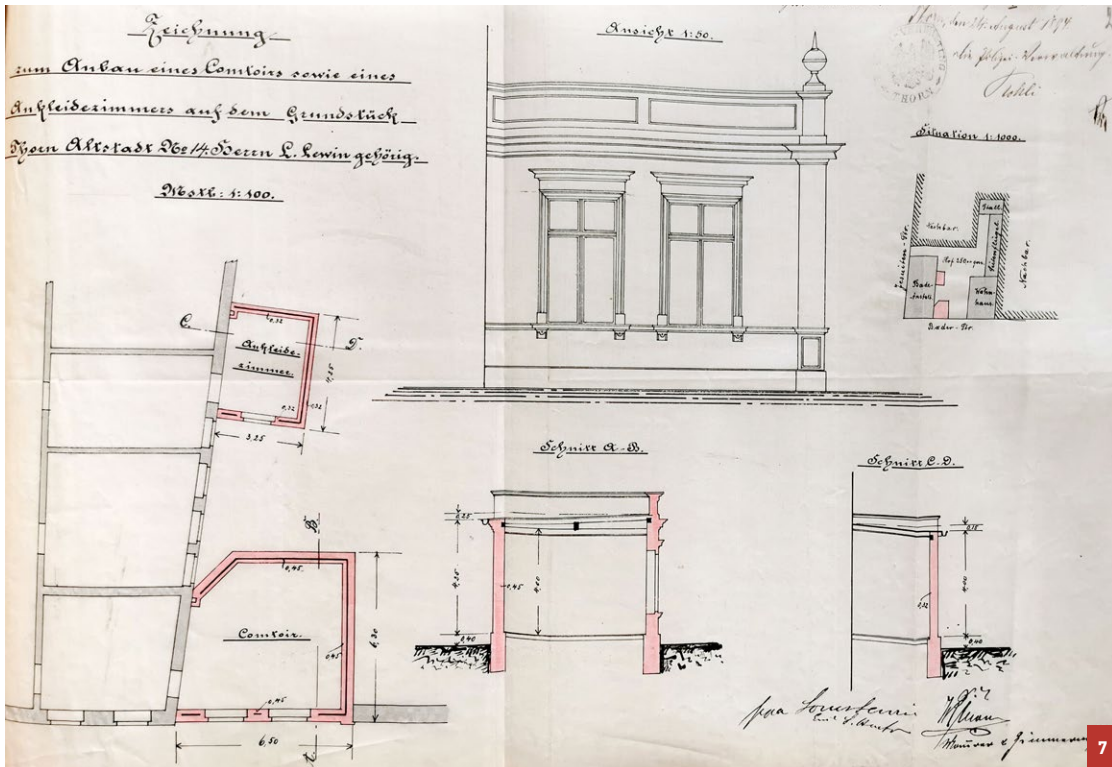 Zeichnung
zum Anbau eines Comtoirs sowie eines
Ankleidezimmers auf dem Grundstück
Thorn Altstadt No 14. Herrn L. Lewin gehörig.
Mstb: 1:100.
Ansicht 1:50.
Thorn, den August 1894
die Polizei-Verwaltung.
THORN
Situation 1:1000.
Stall
Nachbar.
Jesuiten-Str.
Hof
Seitenflügel
Nachbar.
Bade-
Anstalt
Wohn-
haus
Bader-Str.
C.
0,32
D.
Ankleide-
zimmer.
4,25
0,32
0,32
3,25
B.
0,45.
Comtoir.
0,45
6,30
0,45
6,50
A.
Schnitt A-B.
0,25
4,35
0,45
4,00
0,40
Schnitt C-D.
0,15
0,32
4,00
0,40
Maurer & Zimmerm
7